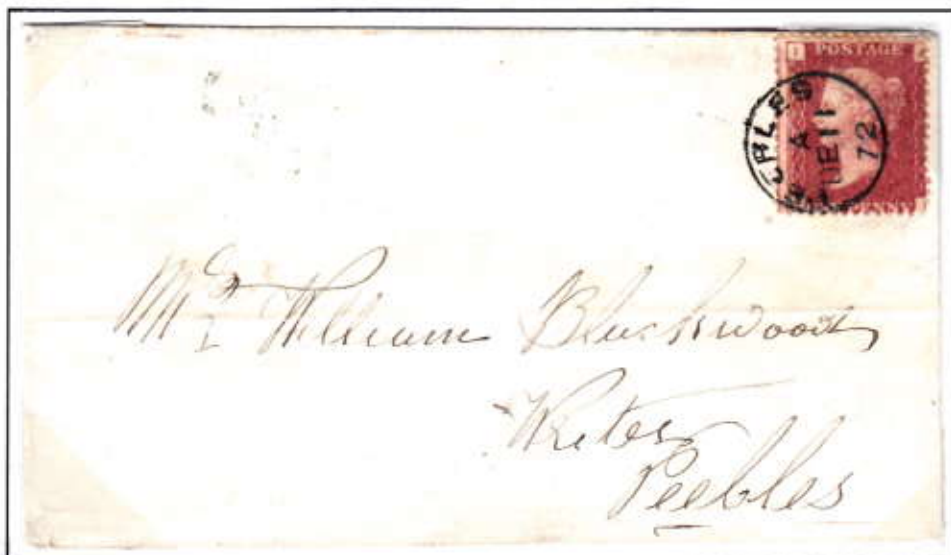 POSTAGE
PEEBLES
A
DE 11
72
Mr William Blackwood
Writer
Peebles